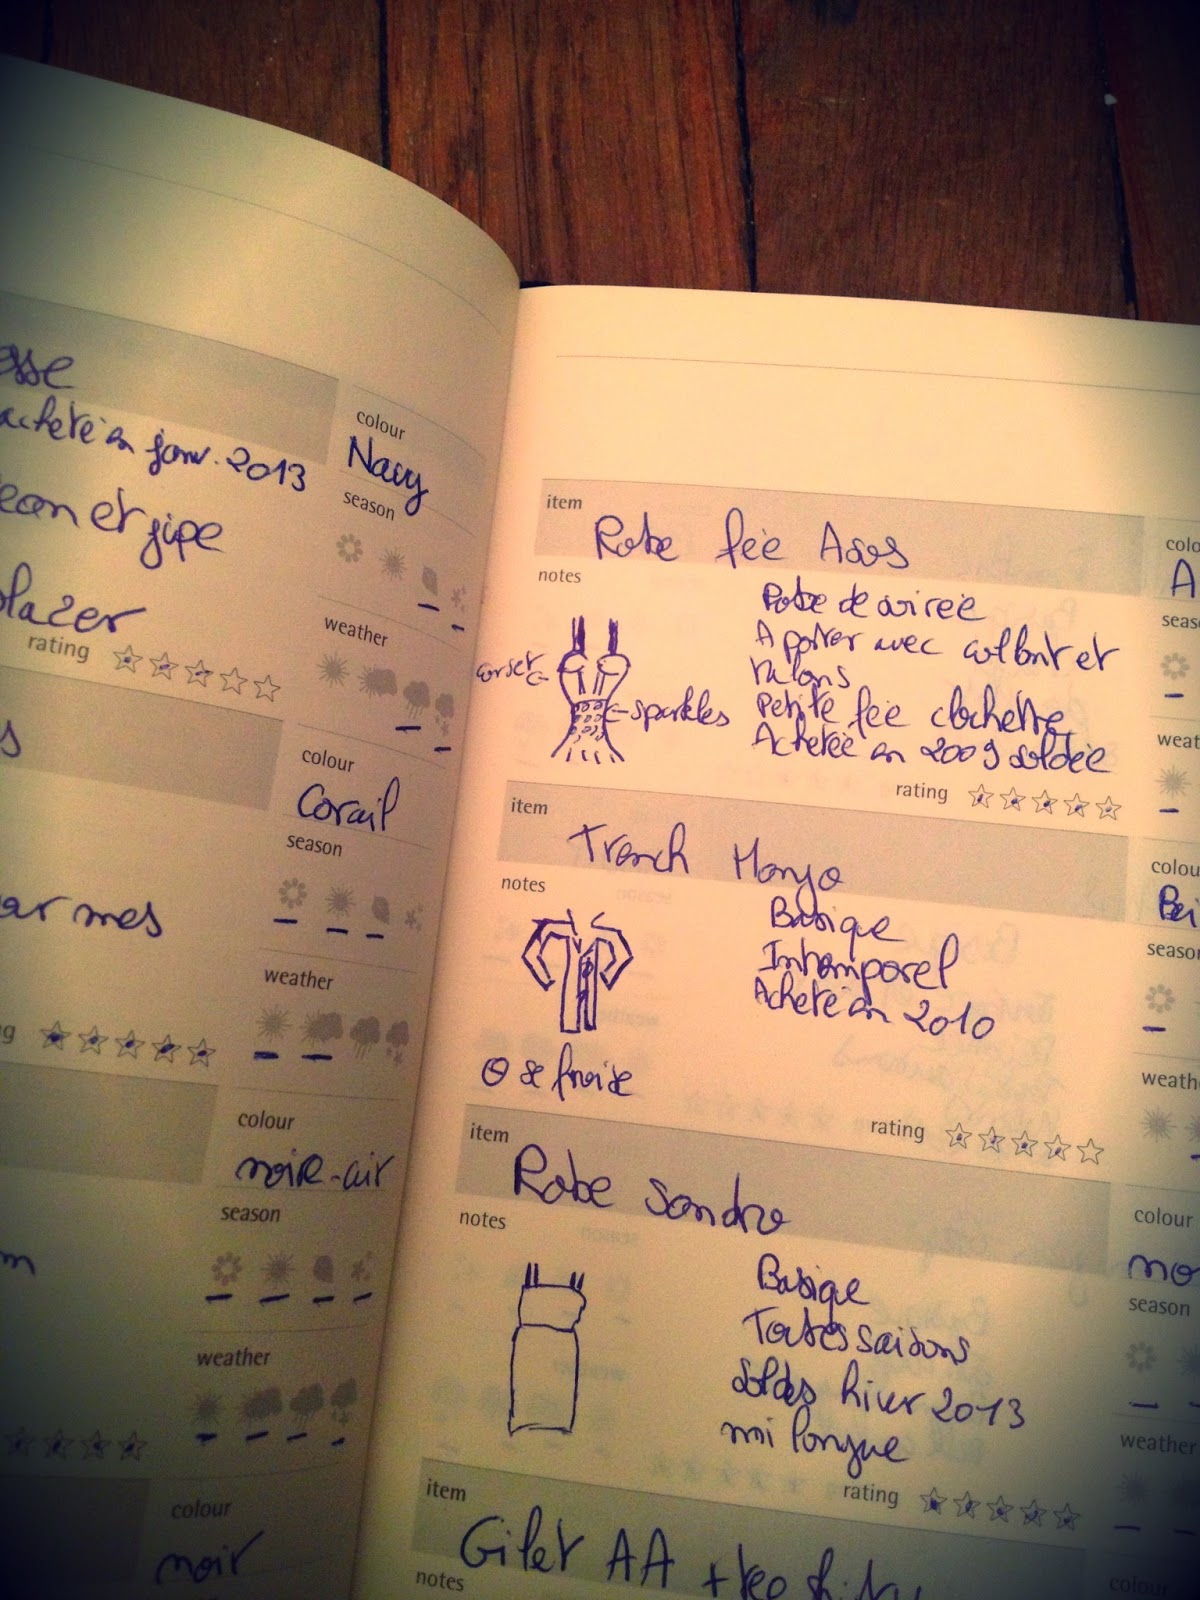 esse
acheté en janv. 2013
jean et jipe
blazer
rating
colour
Navy
season
weather
s
ar mes
colour
Corail
season
weather
colour
noire
season
weather
colour
noir
item
Robe fée Asos
notes
Robe de soirée
A porter avec collant et
talons
Petite fée clochette
Achetée en 2009 soldée
corset
sparkles
rating
item
Trench Mango
notes
Basique
Intemporel
Acheté en 2010
⊖ se froisse
rating
item
Robe Sandro
notes
Basique
Toutes saisons
soldes hiver 2013
mi longue
rating
item
Gilet AA +
notes
colo
A
seas
weat
colou
Bei
season
weathe
colour
no
season
weather
colou